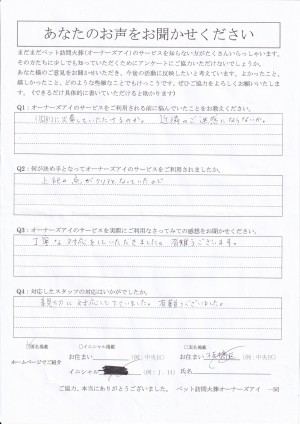 あなたのお声をお聞かせください
まだまだペット訪問火葬(オーナーズアイ)のサービスを知らない方がたくさんいらっしゃいます。
その方たちに少しでも知っていただくためにアンケートにご協力いただけないでしょうか。
あなた様のご意見をお聞かせいただき、今後の活動に反映したいと考えています。よかったこと、
嬉しかったこと、どのような些細なことでもけっこうです。ぜひご協力をよろしくお願いいたしま
す。(できるだけ具体的に書いていただけると助かります)
Q1：オーナーズアイのサービスをご利用される前に悩んでいたことをお教えください。
個別に火葬していただけるのか。 近隣のご迷惑にならないか。
Q2：何が決め手となってオーナーズアイのサービスをご利用されましたか。
上記の点がクリアとなっていたので
Q3：オーナーズアイのサービスを実際にご利用なさってみての感想をお聞かせください。
丁寧な対応をしていただきました。有難うございます。
Q4：対応したスタッフの対応はいかがでしたか。
親切に対応して下さいました。有難うございました。
匿名掲載 □イニシャル掲載 □実名掲載
ホームページでご紹介 お住まい (例：中央区) お住まい (例：中央区)
イニシャル (例：J．H) 氏名
ご協力、本当にありがとうございました。 ペット訪問火葬オーナーズアイ 一同